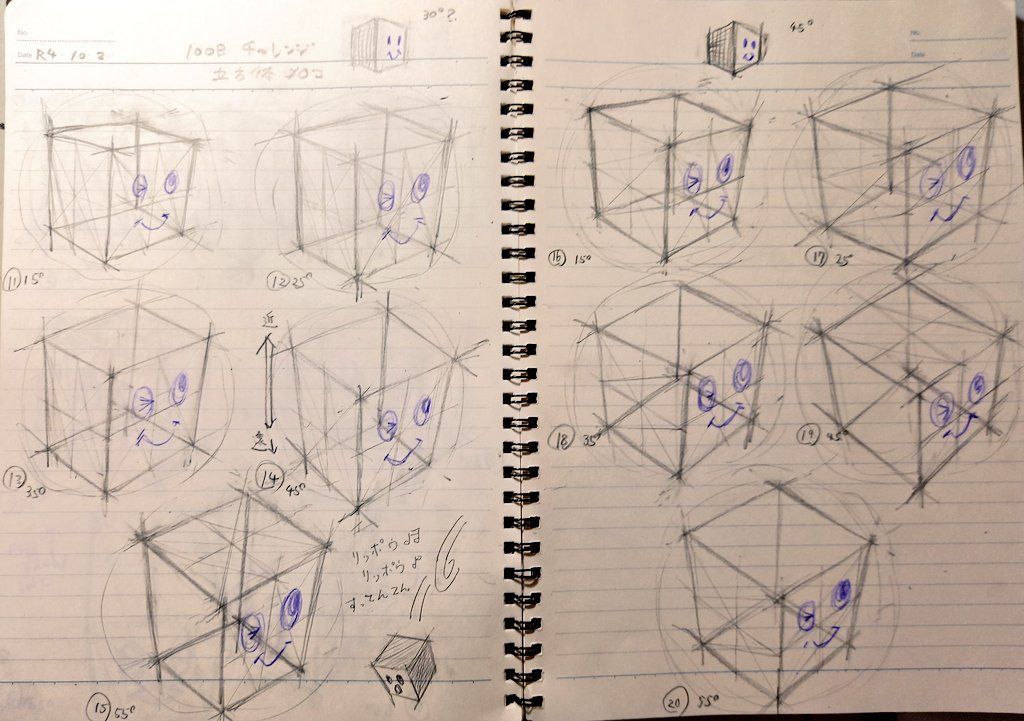 No.
Date R4 10 2
100日 チャレンジ
立方体 ソロコ
30°?
⑪ 15°
⑫ 25°
⑬ 35°
近
遠
⑭ 45°
リッポウ♪
リッポウ♪
すってんてん
⑮ 55°
No.
Date
45°
⑯ 15°
⑰ 25
⑱ 35
⑲ 45°
⑳ 55°